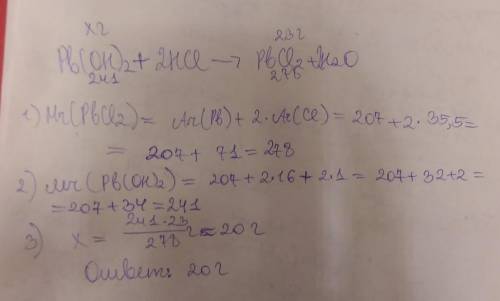 x г 23 г
Pb(OH)2 + 2HCl → PbCl2 + 2H2O
241 278
1) Mr(PbCl2) = Ar(Pb) + 2·Ar(Cl) = 207 + 2·35,5 =
= 207 + 71 = 278
2) Mr(Pb(OH)2) = 207 + 2·16 + 2·1 = 207 + 32 + 2 =
= 207 + 34 = 241
3) x = 241·23 / 278 г = 20 г
Ответ: 20 г